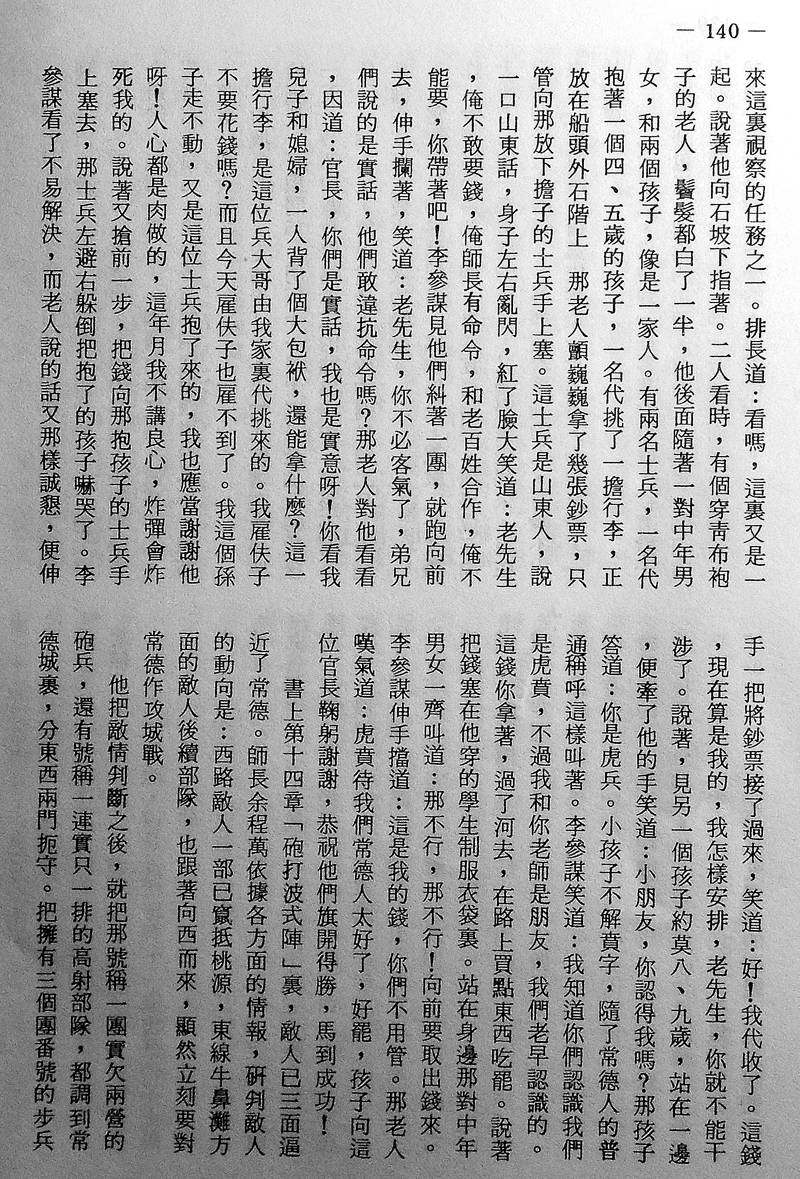 — 140 —
來這裏視察的任務之一。排長道：看嗎，這裏又是一
起。說著他向石坡下指著。二人看時，有個穿靑布袍
子的老人，鬢髮都白了一半，他後面隨著一對中年男
女，和兩個孩子，像是一家人。有兩名士兵，一名代
抱著一個四、五歲的孩子，一名代挑了一擔行李，正
放在船頭外石階上　那老人顫巍巍拿了幾張鈔票，只
管向那放下擔子的士兵手上塞。這士兵是山東人，說
一口山東話，身子左右亂閃，紅了臉大笑道：老先生
，俺不敢要錢，俺師長有命令，和老百姓合作，俺不
能要，你帶著吧！李參謀見他們糾著一團，就跑向前
去，伸手攔著，笑道：老先生，你不必客氣了，弟兄
們說的是實話，他們敢違抗命令嗎？那老人對他看看
，因道：官長，你們是實話，我也是實意呀！你看我
兒子和媳婦，一人背了個大包袱，還能拿什麼？這一
擔行李，是這位兵大哥由我家裏代挑來的。我雇伕子
不要花錢嗎？而且今天雇伕子也雇不到了。我這個孫
子走不動，又是這位士兵抱了來的，我也應當謝謝他
呀！人心都是肉做的，這年月我不講良心，炸彈會炸
死我的。說著又搶前一步，把錢向那抱孩子的士兵手
上塞去，那士兵左避右躲倒把抱了的孩子嚇哭了。李
參謀看了不易解決，而老人說的話又那樣誠懇，便伸
手一把將鈔票接了過來，笑道：好！我代收了。這錢
，現在算是我的，我怎樣安排，老先生，你就不能干
涉了。說著，見另一個孩子約莫八、九歲，站在一邊
，便牽了他的手笑道：小朋友，你認得我嗎？那孩子
答道：你是虎兵。小孩子不解賁字，隨了常德人的普
通稱呼這樣叫著。李參謀笑道：我知道你們認識我們
是虎賁，不過我和你老師是朋友，我們老早認識的。
這錢你拿著，過了河去，在路上買點東西吃罷。說著
把錢塞在他穿的學生制服衣袋裏。站在身邊那對中年
男女一齊叫道：那不行，那不行！向前要取出錢來。
李參謀伸手擋道：這是我的錢，你們不用管。那老人
嘆氣道：虎賁待我們常德人太好了，好罷，孩子向這
位官長鞠躬謝謝，恭祝他們旗開得勝，馬到成功！
書上第十四章「砲打波式陣」裏，敵人已三面逼
近了常德。師長余程萬依據各方面的情報，硏判敵人
的動向是：西路敵人一部已竄抵桃源，東線牛鼻灘方
面的敵人後續部隊，也跟著向西而來，顯然立刻要對
常德作攻城戰。
他把敵情判斷之後，就把那號稱一團實欠兩營的
砲兵，還有號稱一連實只一排的高射部隊，都調到常
德城裏，分東西兩門扼守。把擁有三個團番號的步兵